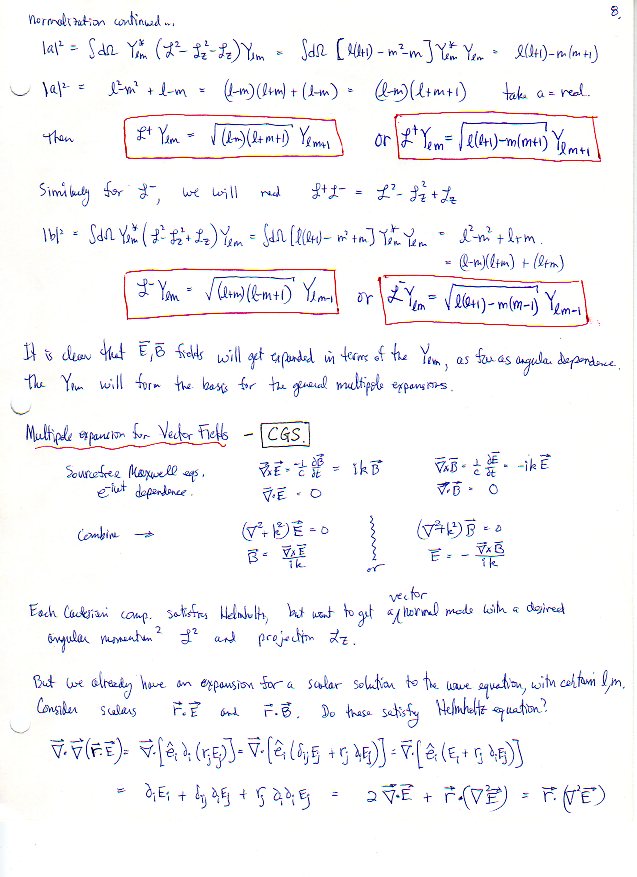 8.
Normalization continued...
|a|² = ∫dΩ Y*ℓm (ℒ² - ℒz² - ℒz) Yℓm = ∫dΩ [ℓ(ℓ+1) - m² - m] Y*ℓm Yℓm = ℓ(ℓ+1) - m(m+1)
|a|² = ℓ² - m² + ℓ - m = (ℓ-m)(ℓ+m) + (ℓ-m) = (ℓ-m)(ℓ+m+1) take a = real.
Then ℒ⁺ Yℓm = √(ℓ-m)(ℓ+m+1) Yℓm+1 or ℒ⁺ Yℓm = √ℓ(ℓ+1) - m(m+1) Yℓm+1
Similarly for ℒ⁻, we will need ℒ⁺ℒ⁻ = ℒ² - ℒz² + ℒz
|b|² = ∫dΩ Y*ℓm (ℒ² - ℒz² + ℒz) Yℓm = ∫dΩ [ℓ(ℓ+1) - m² + m] Y*ℓm Yℓm = ℓ² - m² + ℓ + m.
= (ℓ-m)(ℓ+m) + (ℓ+m)
ℒ⁻ Yℓm = √(ℓ+m)(ℓ-m+1) Yℓm-1 or ℒ⁻ Yℓm = √ℓ(ℓ+1) - m(m-1) Yℓm-1
It is clear that E⃗, B⃗ fields will get expanded in terms of the Yℓm, as far as angular dependence.
The Yℓm will form the basis for the general multipole expansions.
Multipole expansion for Vector Fields - CGS.
Sourcefree Maxwell eqs. ∇⃗×E⃗ = -1/c ∂B⃗/∂t = ikB⃗ ∇⃗×B⃗ = 1/c ∂E⃗/∂t = -ikE⃗
e^-iωt dependence. ∇⃗·E⃗ = 0 ∇⃗·B⃗ = 0
Combine → (∇²+k²)E⃗ = 0 (∇²+k²)B⃗ = 0
B⃗ = ∇⃗×E⃗/ik or E⃗ = - ∇⃗×B⃗/ik
Each Cartesian comp. satisfies Helmholtz, but want to get a vector normal mode with a desired
angular momentum² ℒ² and projection ℒz.
But we already have an expansion for a scalar solution to the wave equation, with certain ℓ, m.
Consider scalars r⃗·E⃗ and r⃗·B⃗. Do these satisfy Helmholtz equation?
∇⃗·∇⃗(r⃗·E⃗) = ∇⃗·[êi ∂i (rjEj)] = ∇⃗·[êi (δijEj + rj ∂iEj)] = ∇⃗·[êi (Ei + rj ∂iEj)]
= ∂iEi + δij ∂iEj + rj ∂i∂iEj = 2∇⃗·E⃗ + r⃗·(∇²E⃗) = r⃗·(∇²E⃗)